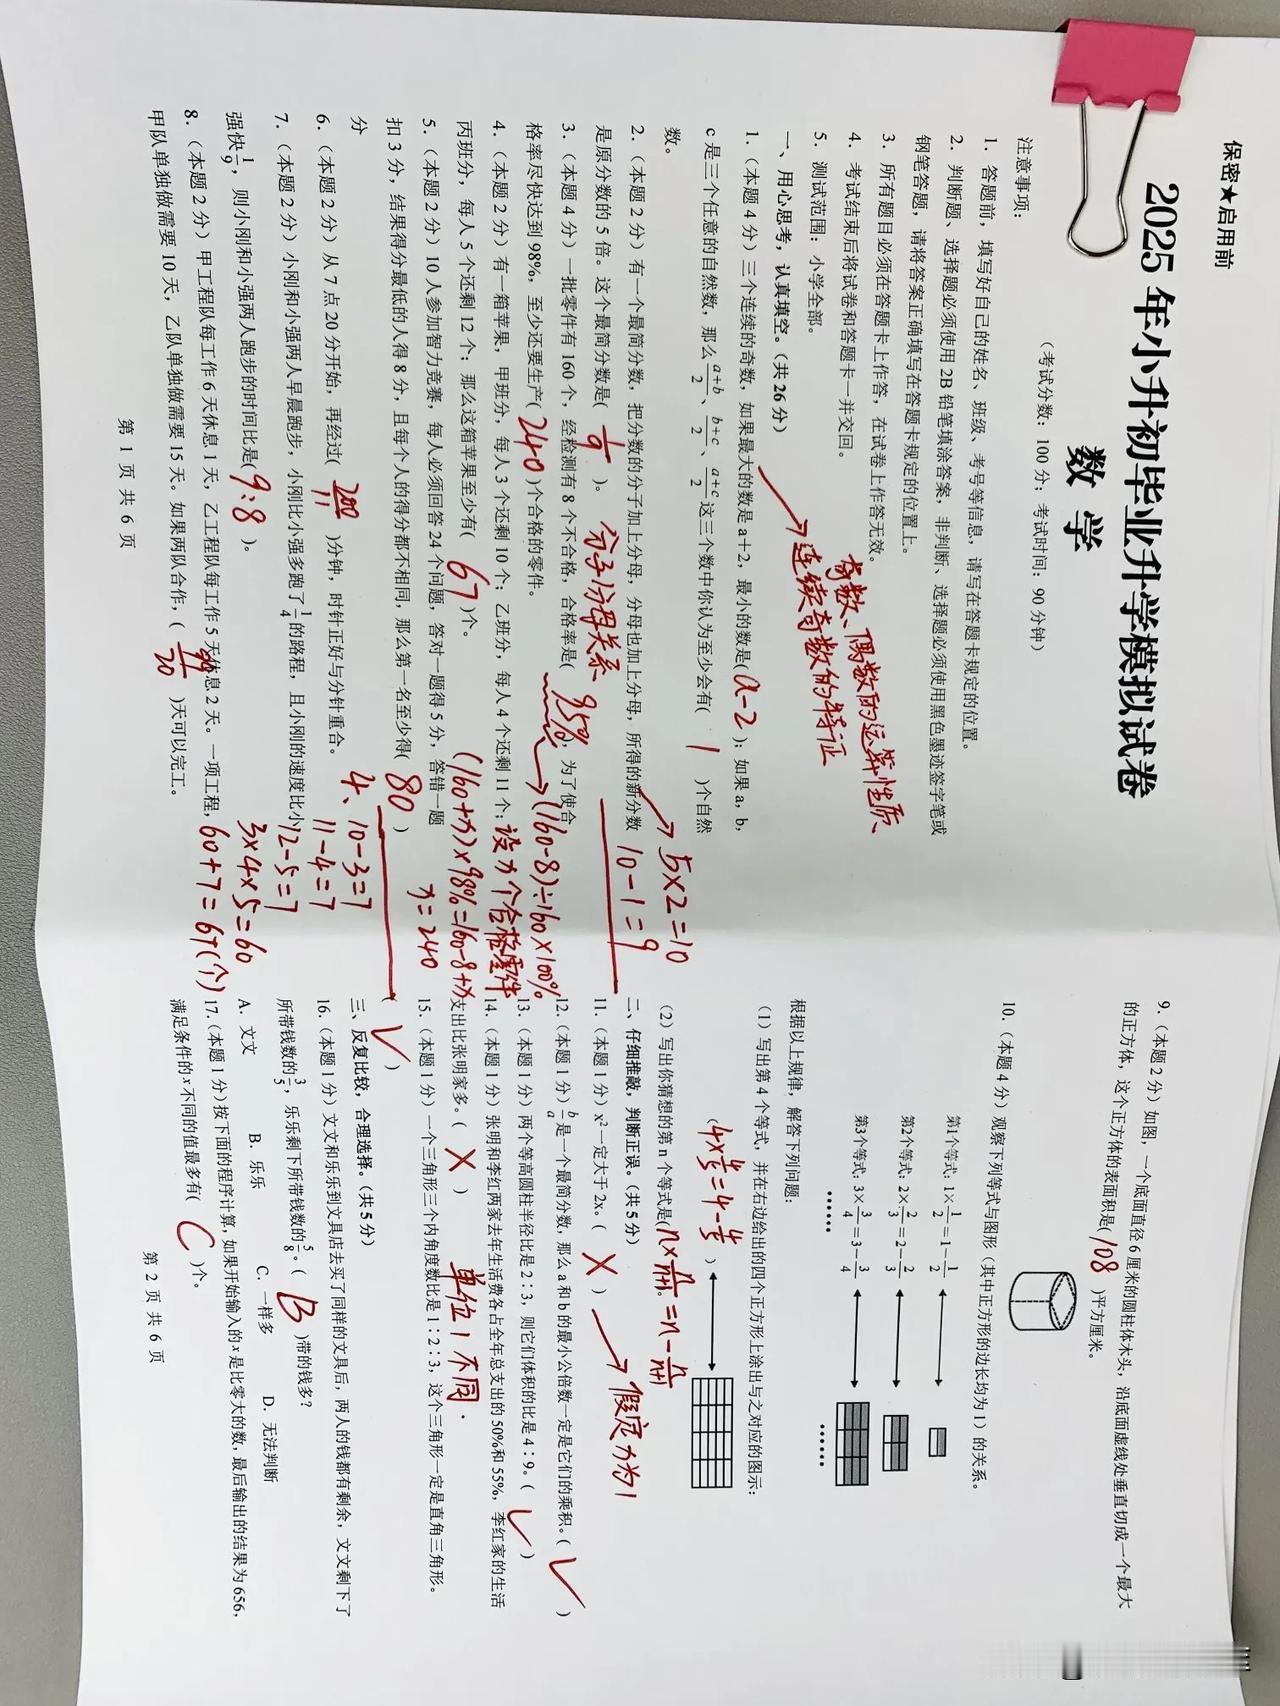 保密★启用前
2025 年小升初毕业升学模拟试卷
数 学
(考试分数:100 分;考试时间:90 分钟)
注意事项:
1. 答题前,填写好自己的姓名、班级、考号等信息,请写在答题卡规定的位置。
2. 判断题、选择题必须使用 2B 铅笔填涂答案,非判断、选择题必须使用黑色墨迹签字笔或
钢笔答题,请将答案正确填写在答题卡规定的位置上。
3. 所有题目必须在答题卡上作答,在试卷上作答无效。
4. 考试结束后将试卷和答题卡一并交回。
5. 测试范围:小学全部。
奇数、偶数的运算性质
连续奇数的特征
一、用心思考,认真填空。(共 26 分)
1.(本题 4 分)三个连续的奇数,如果最大的数是 a+2,最小的数是( a-2 );如果 a,b,
c 是三个任意的自然数,那么 a+b/2 、b+c/2 、a+c/2 这三个数中你认为至少会有( 1 )个自然
数。
2.(本题 2 分)有一个最简分数,把分数的分子加上分母,分母也加上分母,所得的新分数
是原分数的 5 倍。这个最简分数是( 1/9 )。
分子分母关系
5×2=10
10-1=9
3.(本题 4 分)一批零件有 160 个,经检测有 8 个不合格,合格率是( 95% ),为了使合
格率尽快达到 98%,至少还要生产( 240 )个合格的零件。
(160-8)÷160×100%
设x个合格零件
(160+x)×98%=160-8+x
x=240
4.(本题 2 分)有一箱苹果,甲班分,每人 3 个还剩 10 个;乙班分,每人 4 个还剩 11 个;
丙班分,每人 5 个还剩 12 个;那么这箱苹果至少有( 67 )个。
5.(本题 2 分)10 人参加智力竞赛,每人必须回答 24 个问题,答对一题得 5 分,答错一题
扣 3 分,结果得分最低的人得 8 分,且每个人的得分都不相同,那么第一名至少得( 80 )
分
4、10-3=7
11-4=7
12-5=7
3×4×5=60
60+7=67(个)
6.(本题 2 分)从 7 点 20 分开始,再经过( 200/11 )分钟,时针正好与分针重合。
7.(本题 2 分)小刚和小强两人早晨跑步,小刚比小强多跑了 1/4 的路程,且小刚的速度比小
强快 1/9 ,则小刚和小强两人跑步的时间比是( 9:8 )。
8.(本题 2 分)甲工程队每工作 6 天休息 1 天,乙工程队每工作 5 天休息 2 天。一项工程,
甲队单独做需要 10 天,乙队单独做需要 15 天。如果两队合作,( )天可以完工。
第 1 页 共 6 页
9.(本题 2 分)如图,一个底面直径 6 厘米的圆柱体木头,沿底面虚线处垂直切成一个最大
的正方体,这个正方体的表面积是( 108 )平方厘米。
10.(本题 4 分)观察下列等式与图形(其中正方形的边长均为 1)的关系。
第1个等式:1×1/2=1-1/2
第2个等式:2×2/3=2-2/3
第3个等式:3×3/4=3-3/4
……
……
根据以上规律,解答下列问题:
(1)写出第 4 个等式,并在右边给出的四个正方形上涂出与之对应的图示:
( 4×4/5=4-4/5 )
(2)写出你猜想的第 n 个等式是( n×n/n+1=n-n/n+1 )。
二、仔细推敲,判断正误。(共 5 分)
11.(本题 1 分)x²一定大于 2x。( X )
假定x为1
12.(本题 1 分)b/a 是一个最简分数,那么 a 和 b 的最小公倍数一定是它们的乘积。( √ )
13.(本题 1 分)两个等高圆柱半径比是 2∶3,则它们体积的比是 4∶9。( √ )
14.(本题 1 分)张明和李红两家去年生活费各占全年总支出的 50%和 55%,李红家的生活
支出比张明家多。( X )
单位1不同.
15.(本题 1 分)一个三角形三个内角度数比是 1∶2∶3,这个三角形一定是直角三角形。
( √ )
三、反复比较,合理选择。(共 5 分)
16.(本题 1 分)文文和乐乐到文具店去买了同样的文具后,两人的钱都有剩余,文文剩下了
所带钱数的 3/5 ,乐乐剩下所带钱数的 5/8 。( B )带的钱多?
A. 文文 B. 乐乐 C. 一样多 D. 无法判断
17.(本题 1 分)按下面的程序计算,如果开始输入的 x 是比零大的数,最后输出的结果为 656,
满足条件的 x 不同的值最多有( C )个。
第 2 页 共 6 页